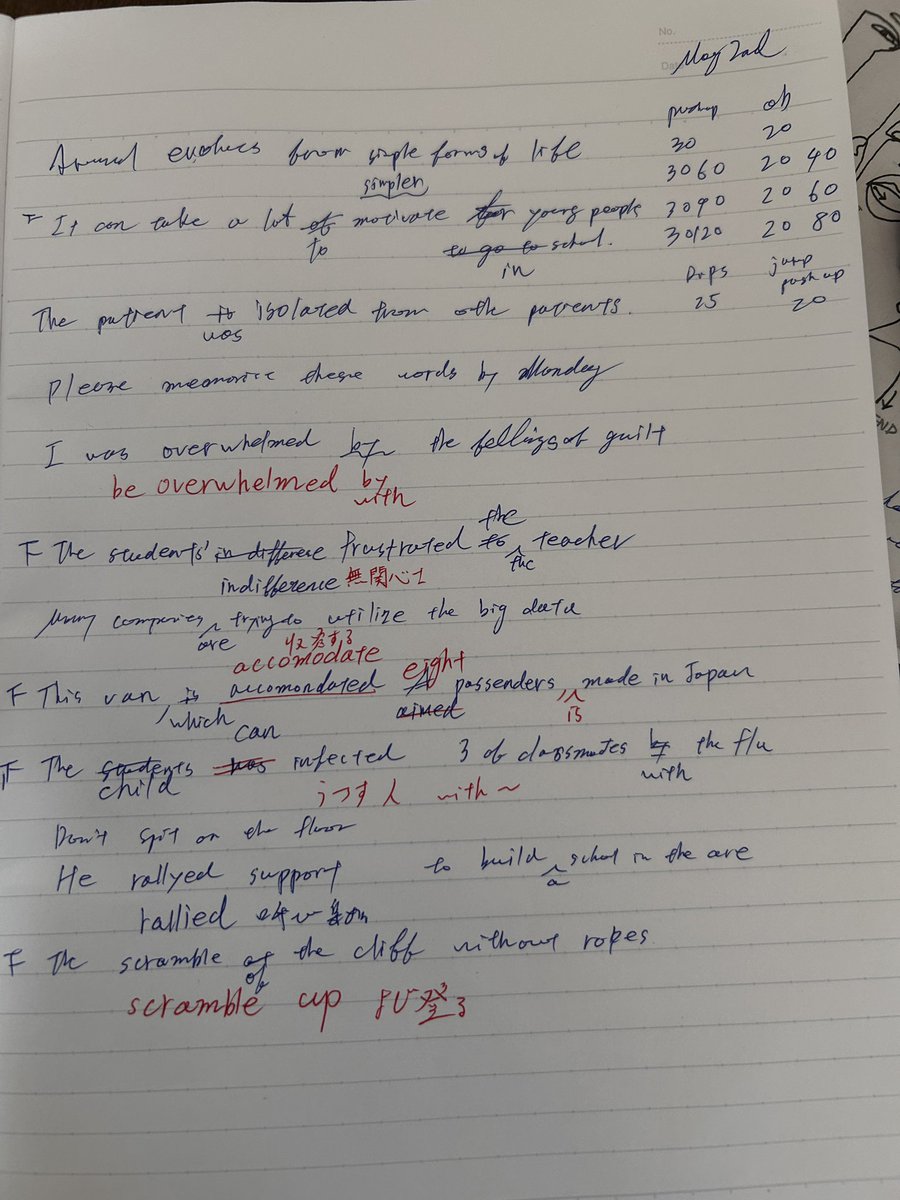 No.
Date
May 2nd
pushup ab
30 20
30 60 20 40
30 90 20 60
30 120 20 80
Dips jump pushup
25 20
evolves from simple forms of life
simpler
F It can take a lot of motivate for young people
to to go to school.
in
The patient is isolated from oth patients.
was
Please memorize these words by Monday
I was overwhelmed by the fellings of guilt
be overwhelmed by
with
the
F The students' in differece frustrated to teacher
the
indifference 無関心
Many companies trying to utilize the big data
are
収容する
accomodate eight
F This van is accomondated passenders made in Japan
which can aimed is
F The students has infected 3 of classmates by the flu
child with
うつす人 with ~
Don't spit on the floor
He rallyed support to build school in the are
a
rallied
F The scramble of the cliff without ropes
of
scramble up よじ登る
END